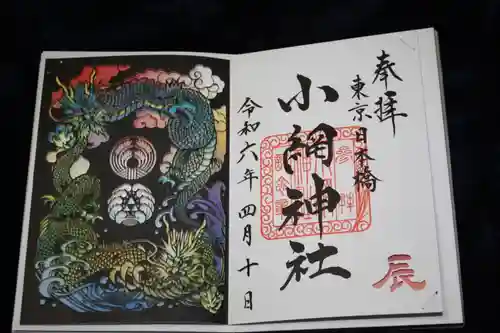 奉拝
東京日本橋
小網神社
令和六年四月十日
辰